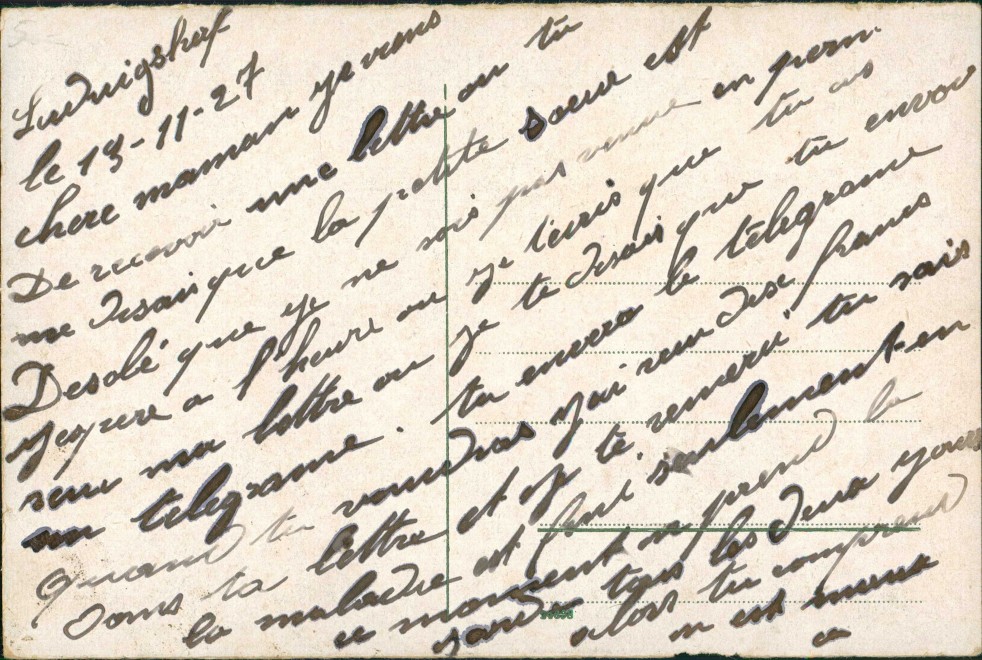 Ludwigshaf
le 13-11-27
chere maman je viens
De recevoir une lettre ou tu
me disai que la petite soeur est
Desolé que je ne sois pas venue en perm.
j'espere a l'heure ou je t'ecris que tu as
reçu ma lettre ou je te disais que tu envoi
un telegrame. tu envera le telegrame
quand tu voudras j'ai reçu dix francs
Dans ta lettre et je te remerci tu sais
la maladie est seulement en
ce moment prend la
garde tous les deux jours
alors tu comprend
est mieux